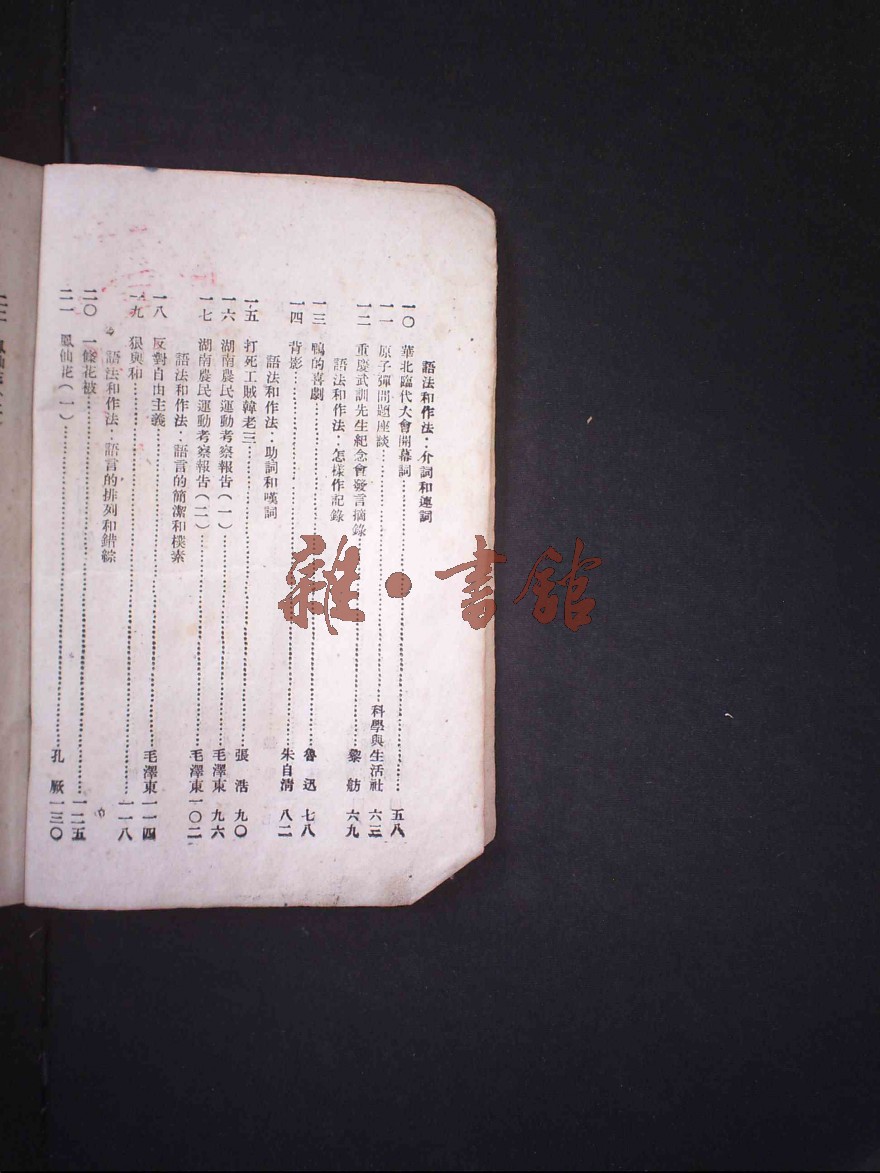 語法和作法：介詞和連詞
一〇 華北臨代大會開幕詞 五八
一一 原子彈問題座談 科學與生活社 六三
一二 重慶武訓先生紀念會發言摘錄 黎 舫 六九
語法和作法：怎樣作記錄
一三 鴨的喜劇 魯 迅 七八
一四 背影 朱自清 八二
語法和作法：助詞和嘆詞
一五 打死工賊韓老三 張 浩 九〇
一六 湖南農民運動考察報告（一） 毛澤東 九六
一七 湖南農民運動考察報告（二） 毛澤東 一〇二
語法和作法：語言的簡潔和樸素
一八 反對自由主義 毛澤東 一一四
一九 狠與和 一一八
語法和作法：語言的排列和錯綜
二〇 一條花被 一二五
二一 鳳仙花（一） 孔 厥 一三〇
雜·書館